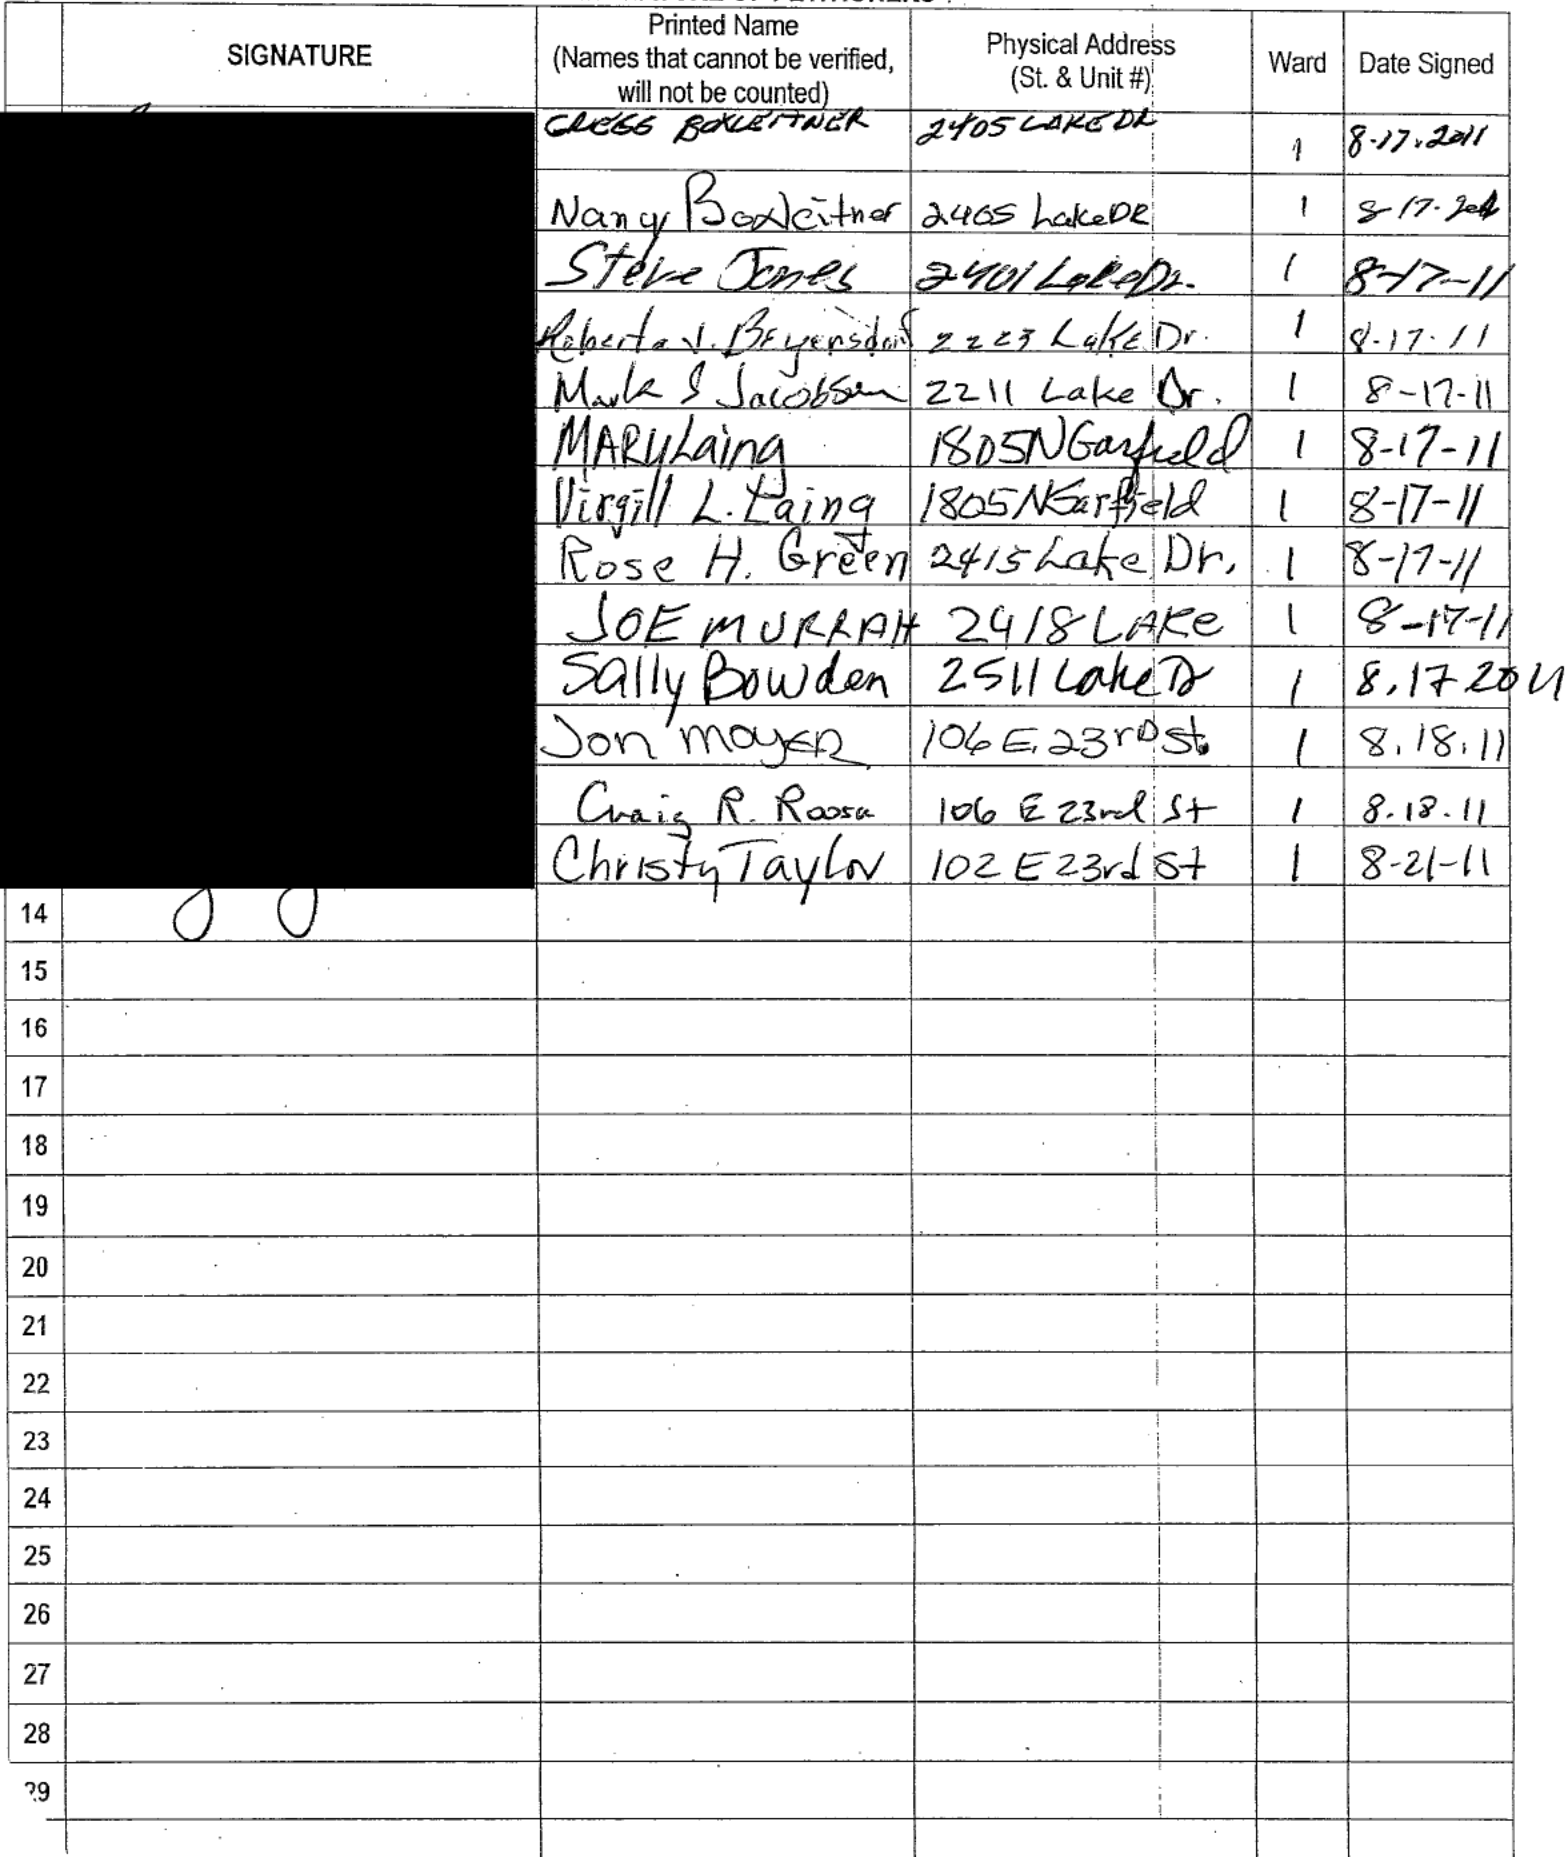 SIGNATURE
Printed Name
(Names that cannot be verified,
will not be counted)
Physical Address
(St. & Unit #)
Ward
Date Signed
GREGG BOXLEITNER 2405 LAKE DR 1 8-17-2011
Nancy Boxleitner 2405 Lake DR 1 8-17-2011
Steve Jones 2401 Lake Dr. 1 8-17-11
Roberta J. Beyersdorf 2223 Lake Dr. 1 8-17-11
Mark S Jacobsen 2211 Lake Dr. 1 8-17-11
MARy Laing 1805 N Garfield 1 8-17-11
Virgill L. Laing 1805 N Garfield 1 8-17-11
Rose H. Green 2415 Lake Dr. 1 8-17-11
JOE MURRAH 2418 LAKe 1 8-17-11
Sally Bowden 2511 Lake Dr 1 8.17 2011
Jon moyeR 106 E. 23rD st. 1 8.18.11
Craig R. Roosa 106 E 23rd St 1 8.18.11
Christy Taylor 102 E 23rd St 1 8-21-11
14
15
16
17
18
19
20
21
22
23
24
25
26
27
28
29